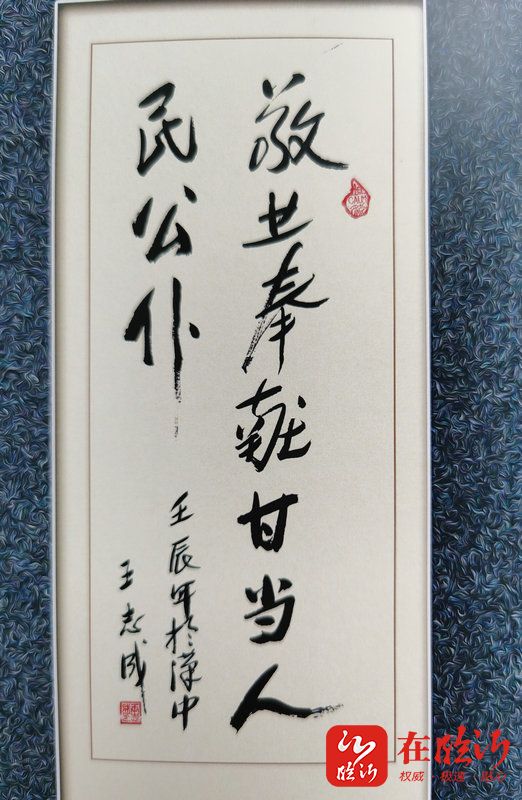 敬业奉献甘当人
民公仆
壬辰年於汉中
王志成
CALM
在临沂
临沂
权威·极速·贴心